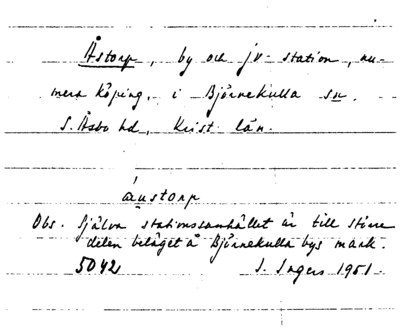 Åstorp, by och jv-station, nu-
mera köping, i Björnekulla sn.
S. Åsbo hd, Krist. län.
áustorp
Obs. Själva stationssamhället är till större
delen beläget å Björnekulla bys mark.
5042 S. Ingers 1951.